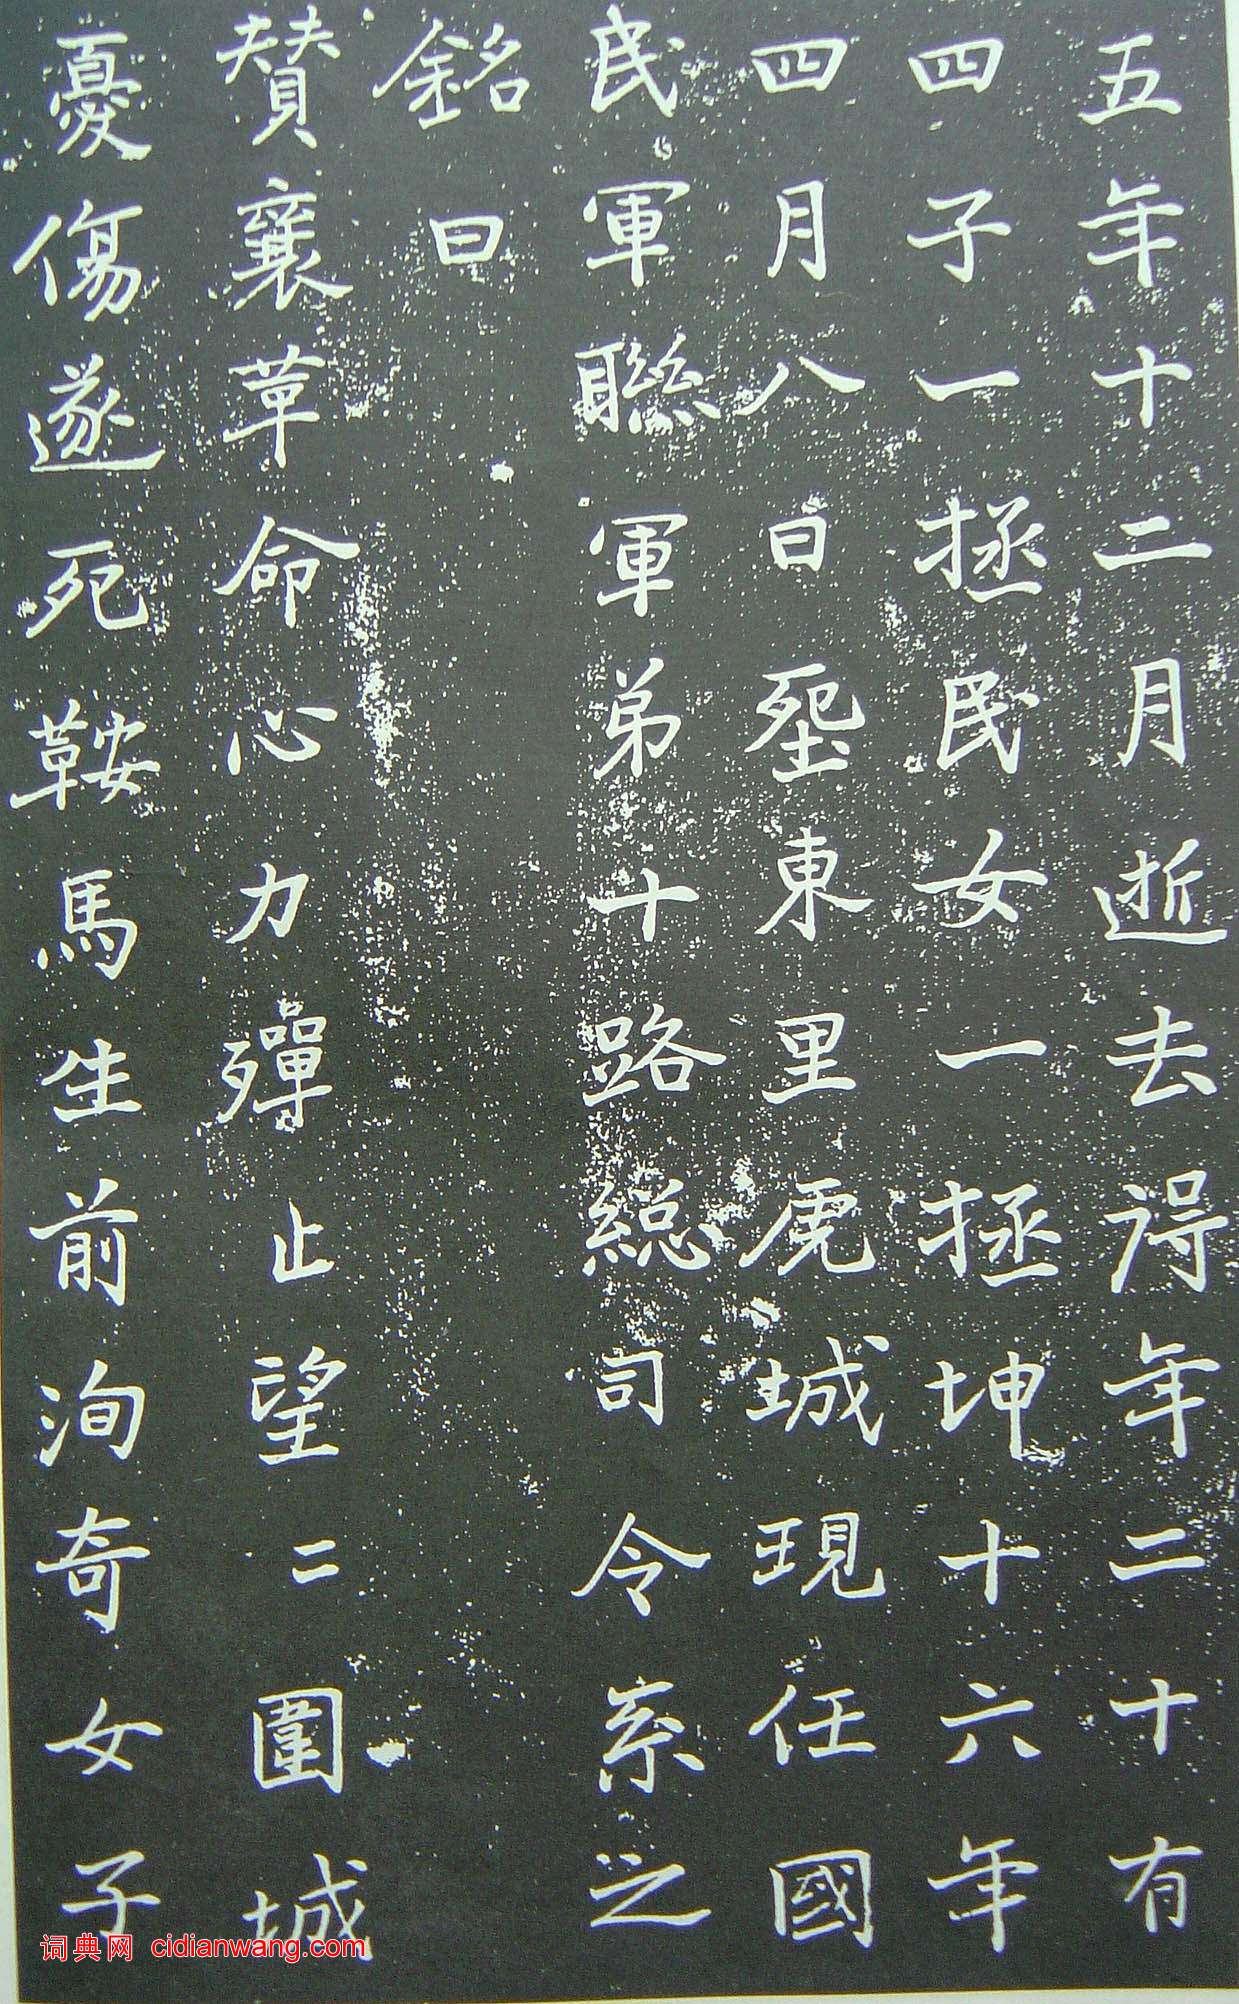 五年十二月逝去得年二十有
四子一拯民女一拯坤十六年
四月八日堊東里虎城現任國
民軍聯軍弟十路總司令系之
銘曰
贊襄革命心力殫止望二圍城
憂傷遂死鞍馬生前洵奇女子
词典网 cidianwang.com